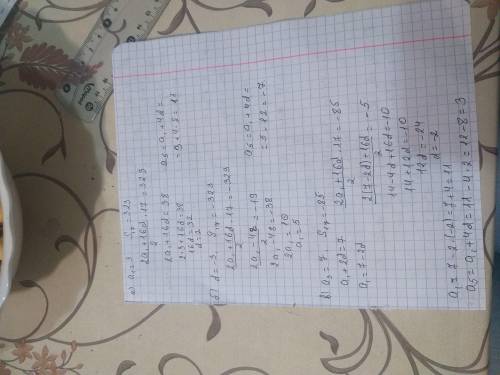 а) a₁=3 S₁₇=323
(2a₁+16d)/2 · 17=323
2a₁+16d=38
2·3+16d=38
16d=32
d=2
a₅=a₁+4d=
=3+4·2=11
б) d=-3, S₁₇=-323
(2a₁+16d)/2 · 17=-323
(2a₁-48)/2=-19
2a₁-48=-38
2a₁=10
a₁=5
a₅=a₁+4d=
=5-12=-7
в) a₃=7 S₁₇=-85
a₁+2d=7
a₁=7-2d
(2a₁+16d)/2 · 17=-85
(2(7-2d)+16d)/2=-5
14-4d+16d=-10
14+12d=-10
12d=-24
d=-2
a₁=7-2·(-2)=7+4=11
a₅=a₁+4d=11-4·2=11-8=3